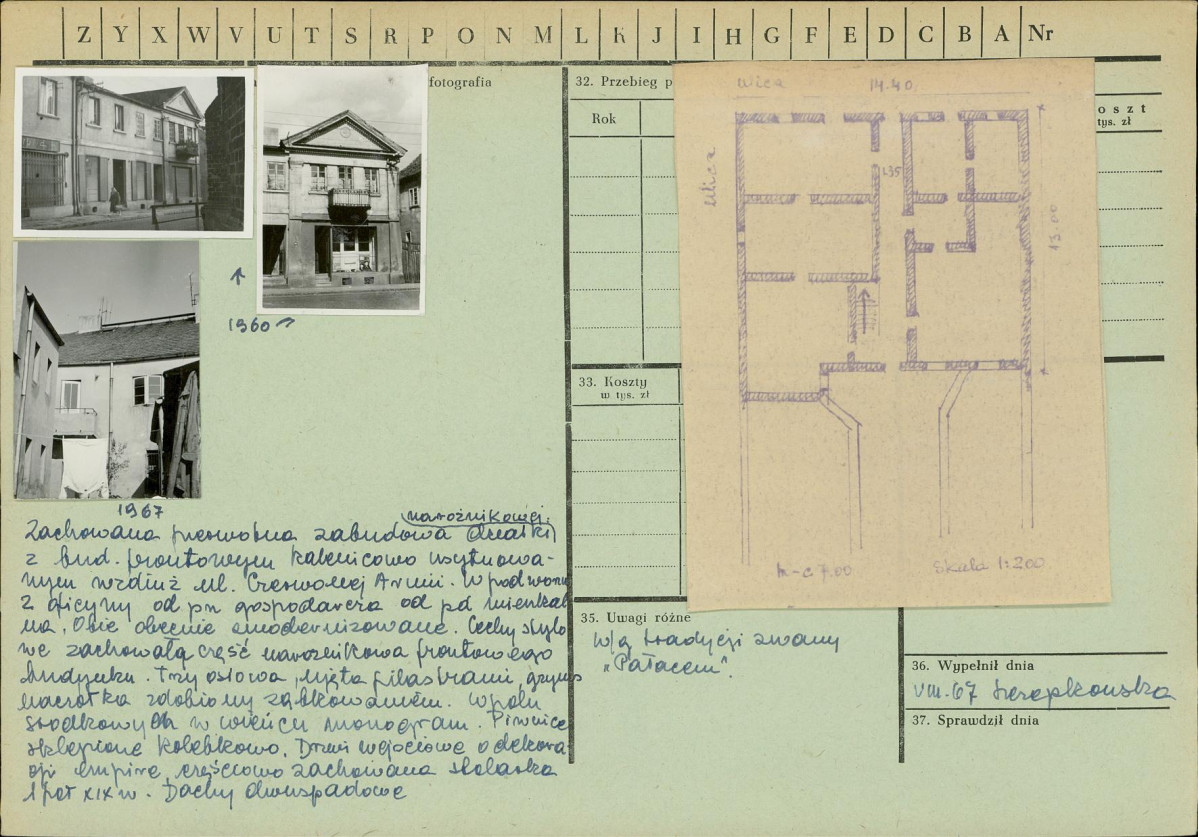 Z Y X W V U T S R P O N M L K J I H G F E D C B A Nr
fotografia
1960
1967
narożnikowej.
Zachowana pierwotna zabudowa działki
z bud. frontowym kalenicowo usytuowa-
nym wzdłuż ul. Czerwonej Armii. W podwórzu
2 oficyny od pn gospodarcza od pd mieszkal
na. Obie obecnie zmodernizowane. Cechy stylo
we zachowała część narożnikowa frontowego
budynku. Trzy osiowa, ujęta pilastrami, gzyms
naczółka zdobiony ząbkowaniem. W polu
środkowym w wieńcu monogram. Piwnice
sklepione kolebkowo. Drzwi wejściowe o dekora
cji empire, częściowo zachowana stolarka
1 poł XIX w. Dachy dwuspadowe
32. Przebieg p
Rok
oszt
tys. zł
33. Koszty
w tys. zł
Ulica
14.40
Ulica
1.35
13.00
7.00
Skala 1:200
35. Uwagi różne
W/g tradycji zwany
„Pałacem".
36. Wypełnił dnia
VIII.67
37. Sprawdził dnia